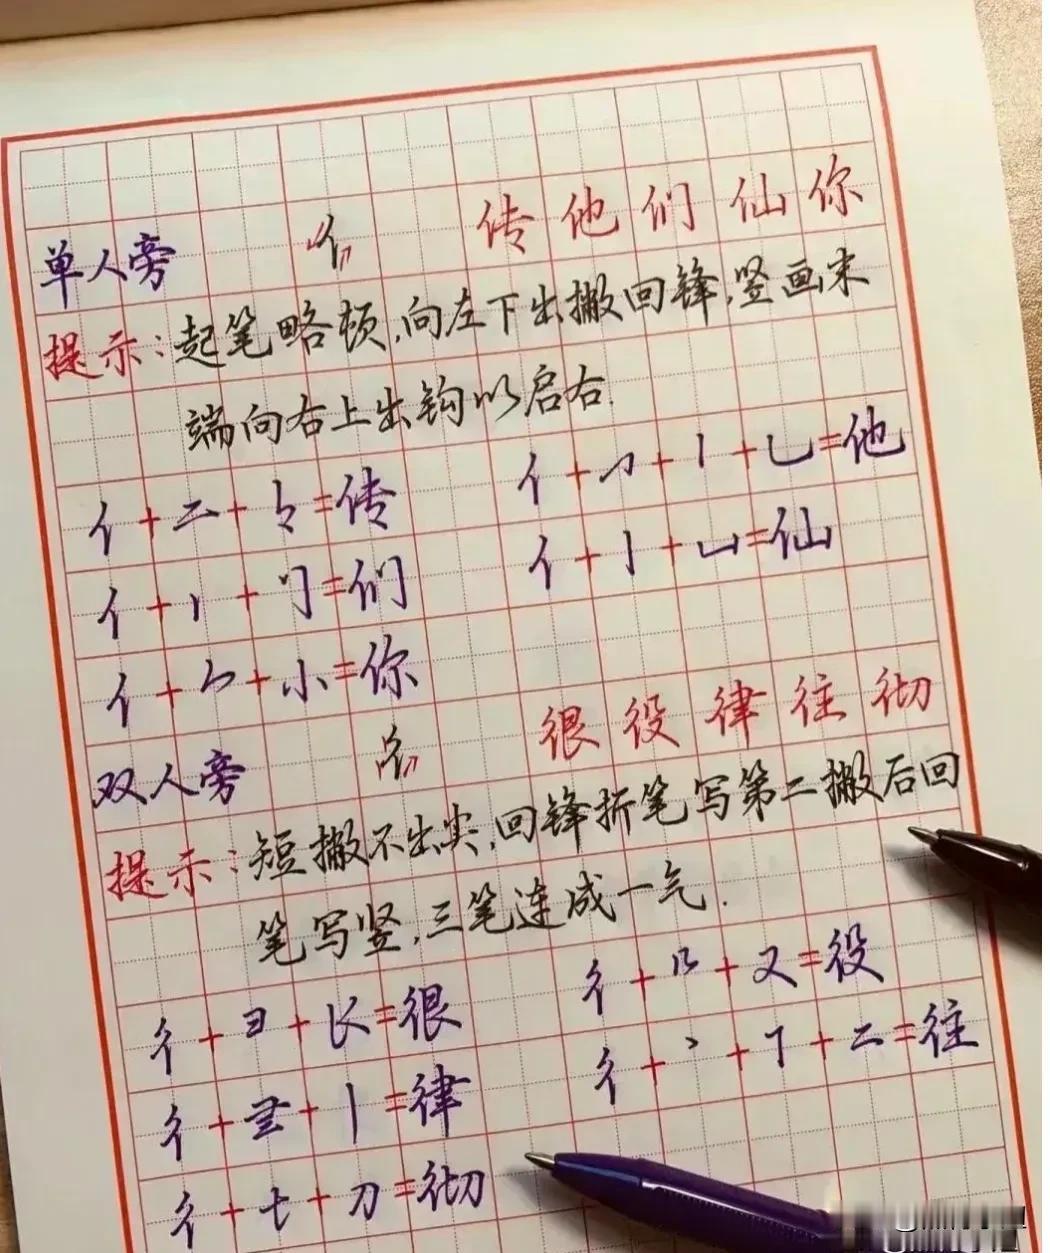 单人旁 《亻》 传他们仙你
提示：起笔略顿，向左下出撇回锋，竖画末
端向右上出钩以启右．
亻+二+=传 亻+乛+丨+乚=他
亻+丨+=们 亻+丨+凵=仙
亻+𠂊+小=你
双人旁 《彳》 很役律往彻
提示：短撇不出尖，回锋折笔写第二撇后回
笔写竖，三笔连成一气．
彳+彐+=很 彳+几+又=役
彳+肀+丨=律 彳+丶++二=往
彳+七+刀=彻